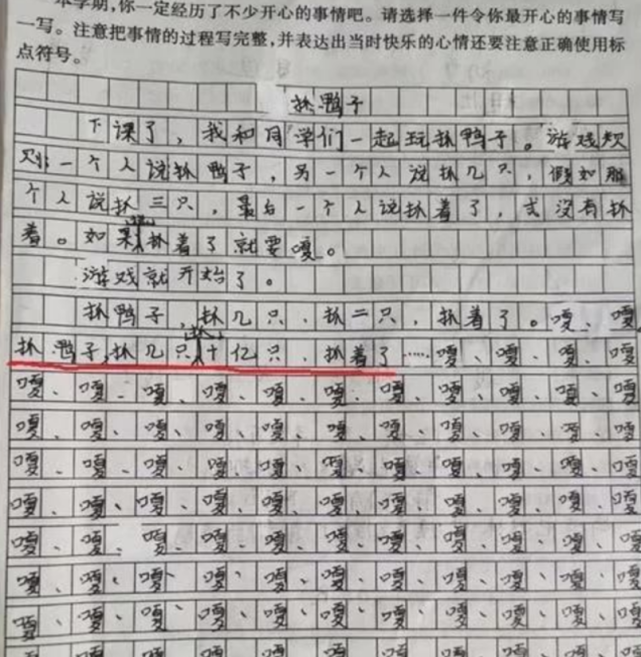 本学期,你一定经历了不少开心的事情吧。请选择一件令你最开心的事情写
一写。注意把事情的过程写完整,并表达出当时快乐的心情还要注意正确使用标
点符号。
抓鸭子
下课了,我和同学们一起玩抓鸭子。游戏规
则:一个人说抓鸭子,另一个人说抓几只,假如
个人说抓三只,最后一个人说抓着了,或没有抓
着。如果抓着了就要嘎。
游戏就开始了。
抓鸭子,抓几只,抓二只,抓着了。嘎、嘎
抓鸭子,抓几只,抓十亿只,抓着了……嘎、嘎、嘎、
嘎、嘎、嘎、嘎、嘎、嘎、嘎、嘎、嘎、嘎、嘎
嘎、嘎、嘎、嘎、嘎、嘎、嘎、嘎、嘎、嘎、嘎
嘎、嘎、嘎、嘎、嘎、嘎、嘎、嘎、嘎、嘎、嘎
嘎、嘎、嘎、嘎、嘎、嘎、嘎、嘎、嘎、嘎、嘎
嘎、嘎、嘎、嘎、嘎、嘎、嘎、嘎、嘎、嘎、嘎
嘎、嘎、嘎、嘎、嘎、嘎、嘎、嘎、嘎、嘎、嘎
嘎、嘎、嘎、嘎、嘎、嘎、嘎、嘎、嘎、嘎、嘎